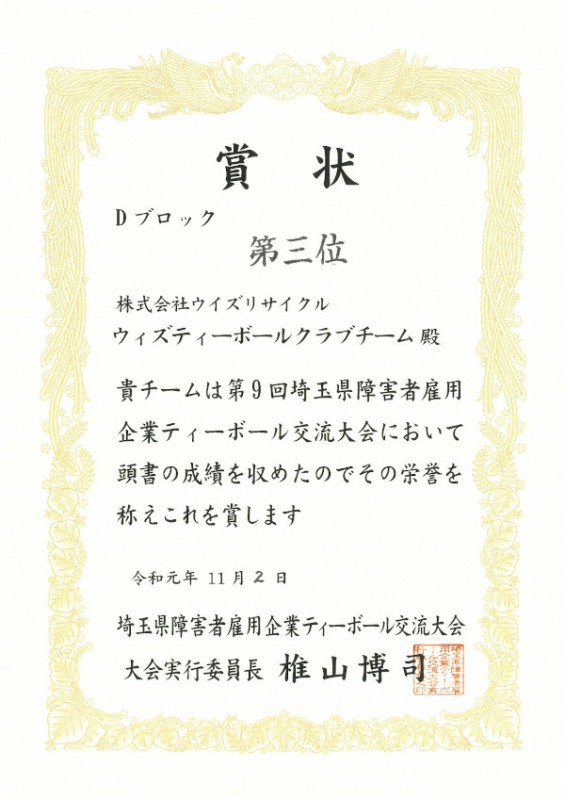 賞状
Dブロック
第三位
株式会社ウイズリサイクル
ウィズティーボールクラブチーム 殿
貴チームは第9回埼玉県障害者雇用
企業ティーボール交流大会において
頭書の成績を収めたのでその栄誉を
称えこれを賞します
令和元年 11月2日
埼玉県障害者雇用企業ティーボール交流大会
大会実行委員長 椎山博司